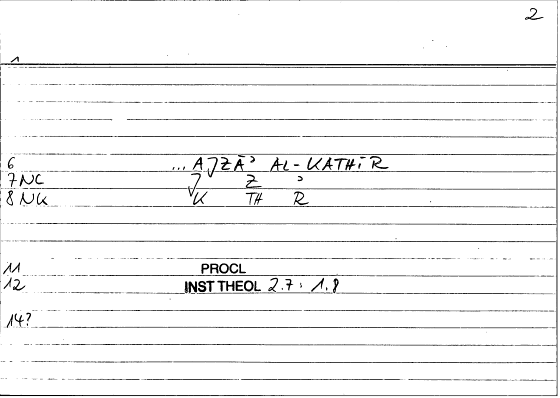 2
1
6 ... AJZĀʾ AL-KATHĪR
7NC J Z ʾ
8NK K TH R
11 PROCL
12 INST THEOL 2.7 : 1.8
14?